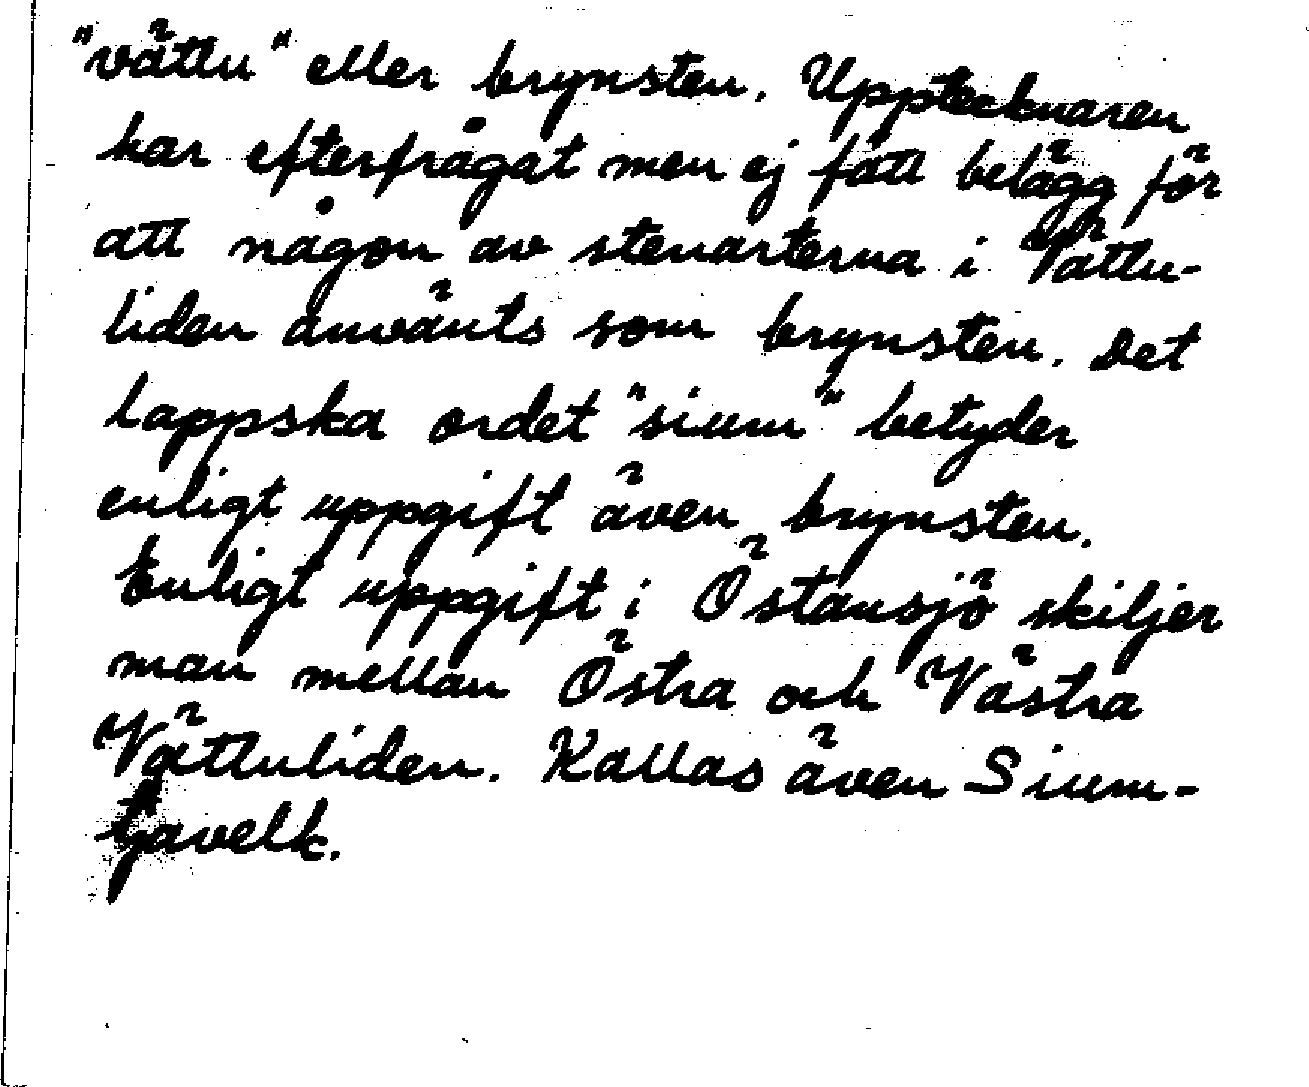 "vättu" eller brynsten. Upptecknaren
har efterfrågat men ej fått belägg för
att någon av stenarterna i Vättu-
liden använts som brynsten. Det
lappska ordet "sium" betyder
enligt uppgift även brynsten.
Enligt uppgift i Östansjö skiljer
man mellan Östra och Västra
Vättuliden. Kallas även Sium-
tjavelk.